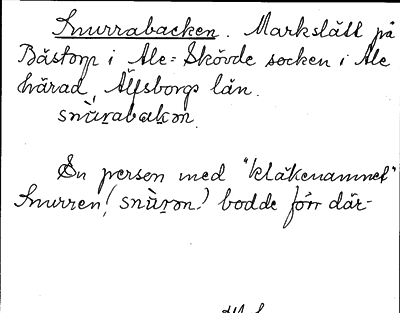 Snurrabacken. Markslätt på
Båstorp i Ale-Skövde socken i Ale
härad, Älfsborgs län.
snùrabakən.
En person med "kläkenamnet"
Snurren (snùrən) bodde förr där-